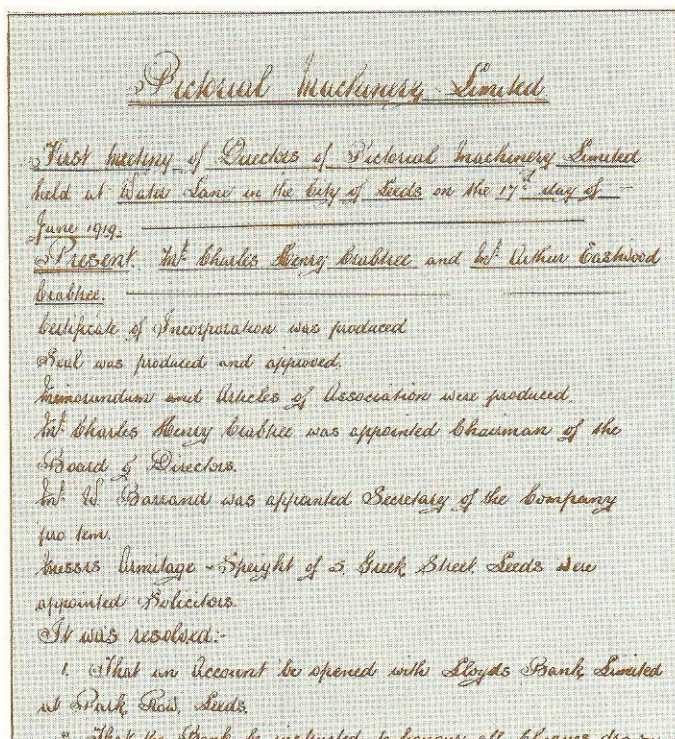 Pictorial Machinery Limited
First Meeting of Directors of Pictorial Machinery Limited
held at Water Lane in the City of Leeds on the 17th day of –
June 1919.
Present. Mr. Charles Henry Crabtree and Mr. Arthur Eastwood
Crabtree.
Certificate of Incorporation was produced
Seal was produced and approved.
Memorandum and Articles of Association were produced.
Mr. Charles Henry Crabtree was appointed Chairman of the
Board of Directors.
Mr. W. Barrand was appointed Secretary of the Company
pro tem.
Messrs Armitage - Speight of 5. Greek Street. Leeds were
appointed Solicitors.
It was resolved:-
1. That an Account be opened with Lloyds Bank Limited
at Park Row, Leeds.
That the Bank be instructed to honour all Cheques drawn